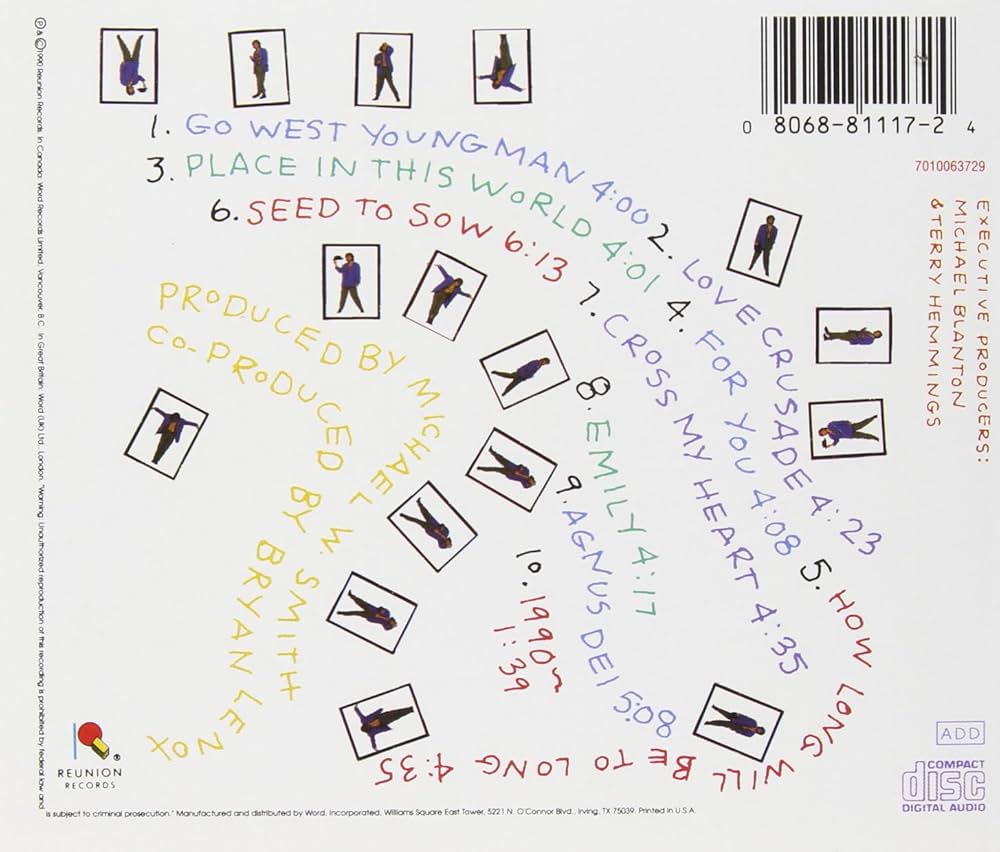 1. GO WEST YOUNG MAN 4:00
2. LOVE CRUSADE 4:23
3. PLACE IN THIS WORLD 4:01
4. FOR YOU 4:08
5. HOW LONG WILL BE TO LONG 4:35
6. SEED TO SOW 6:13
7. CROSS MY HEART 4:35
8. EMILY 4:17
9. AGNUS DEI 5:08
10. 1990 1:39
PRODUCED BY MICHAEL W. SMITH
CO-PRODUCED BY BRYAN LENOX
0 8068-81117-2 4
7010063729
EXECUTIVE PRODUCERS:
MICHAEL BLANTON
& TERRY HEMMINGS
REUNION
RECORDS
ADD
COMPACT
disc
DIGITAL AUDIO
℗ & © 1990 Reunion Records. In Canada: Word Records Limited, Vancouver, B.C. in Great Britain, Word (UK) Ltd. London. "Warning: Unauthorized reproduction of this recording is prohibited by federal law and
is subject to criminal prosecution." Manufactured and distributed by Word, Incorporated, Williams Square East Tower, 5221 N. O'Connor Blvd., Irving, TX 75039. Printed in U.S.A.